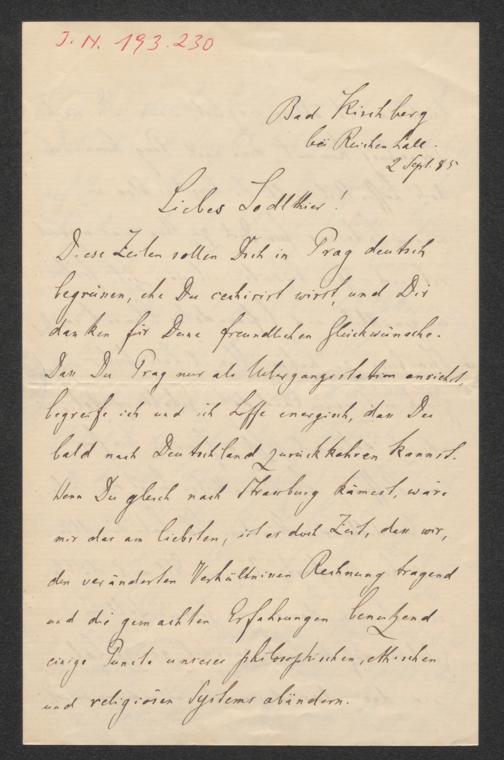 J. N. 193.230
Bad Kirchberg
bei Reichenhall.
2 Sept. 85
Liebes Jodlthier!
Diese Zeilen sollen Dich in Prag deutsch
begrüssen, ehe Du cechisirt wirst, und Dir
danken für Deine freundlichen Glückwünsche.
Dass Du Prag nur als Uebergangsstation ansiehst,
begreife ich und ich hoffe energisch, dass Du
bald nach Deutschland zurückkehren kannst.
Wenn Du gleich nach Strassburg kämest, wäre
mir das am liebsten, ist es doch Zeit, dass wir,
den veränderten Verhältnissen Rechnung tragend
und die gemachten Erfahrungen benutzend
einige Puncte unseres philosophischen, ethischen
und religiösen Systems abändern.